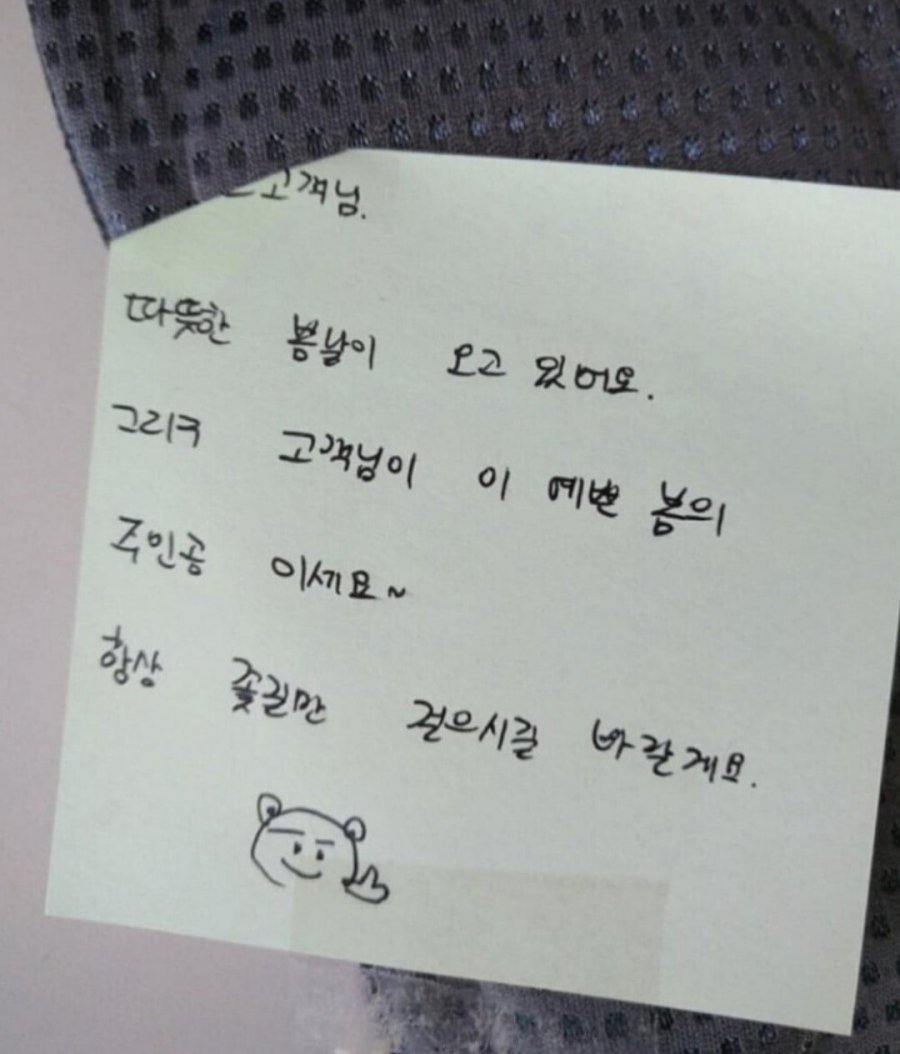 고객님.
따뜻한 봄날이 오고 있어요.
그리구 고객님이 이 예쁜 봄의
주인공 이세요~
항상 꽃길만 걸으시길 바랄게요.